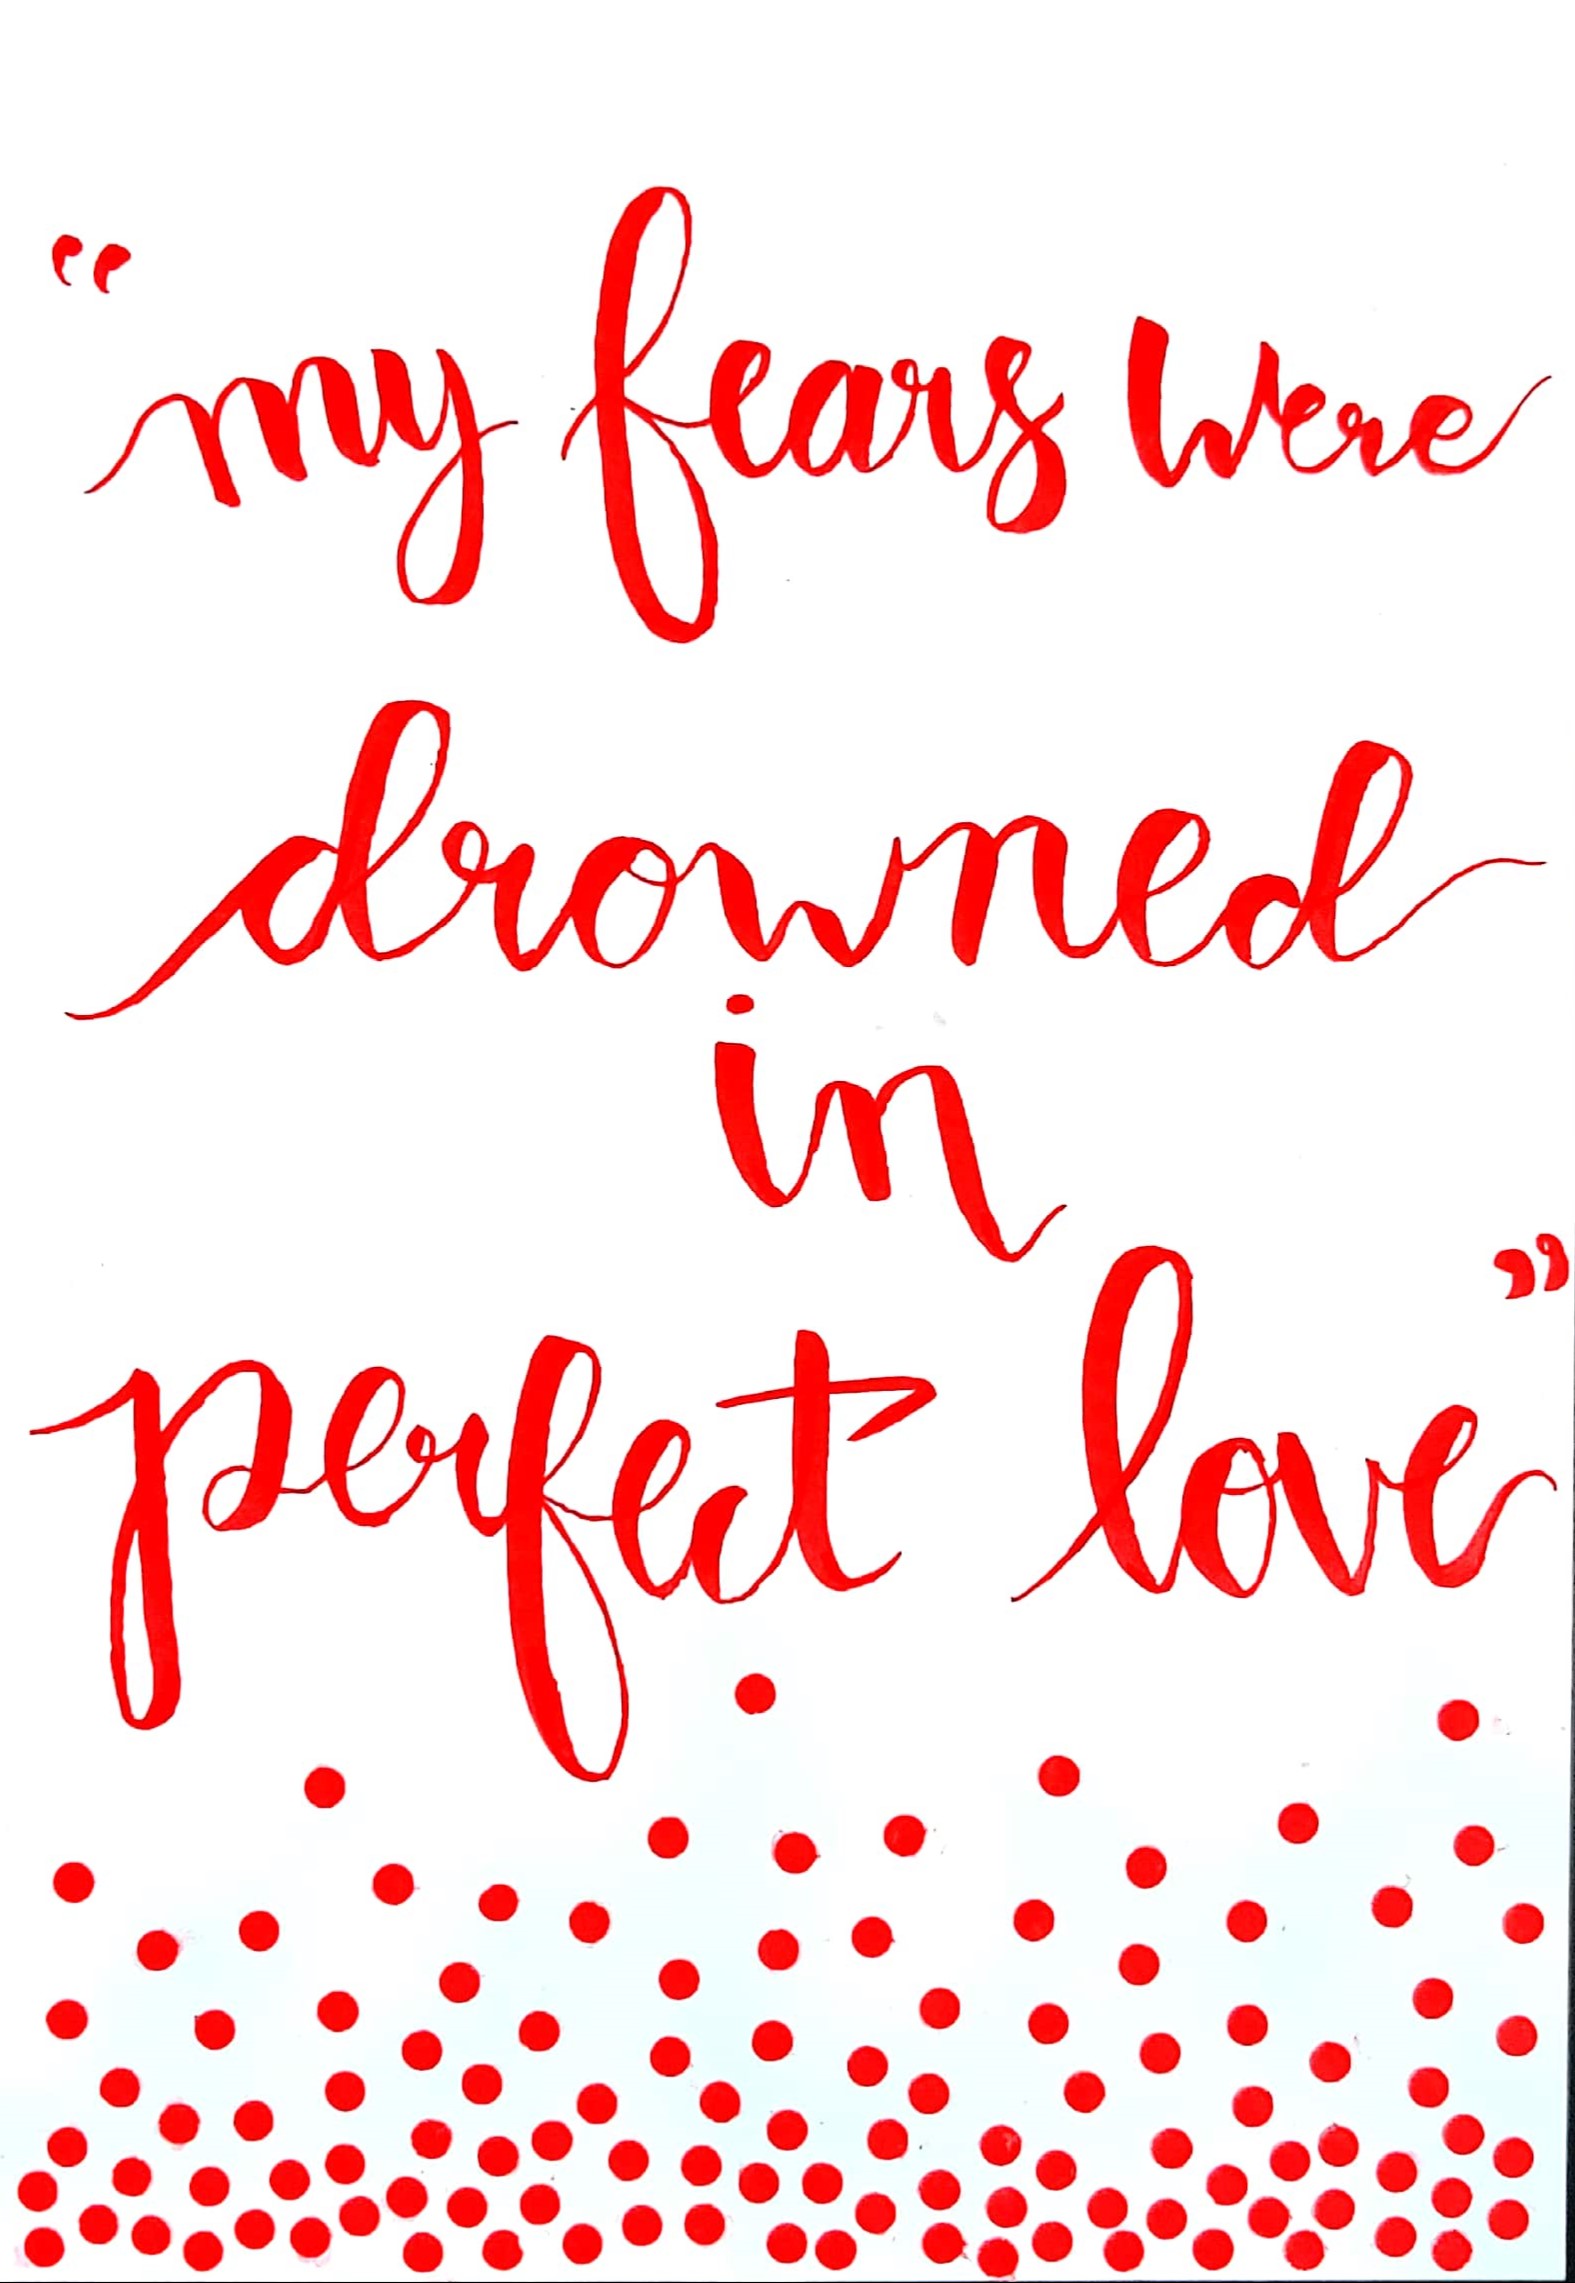 “my fears were
drowned
in
perfect love”